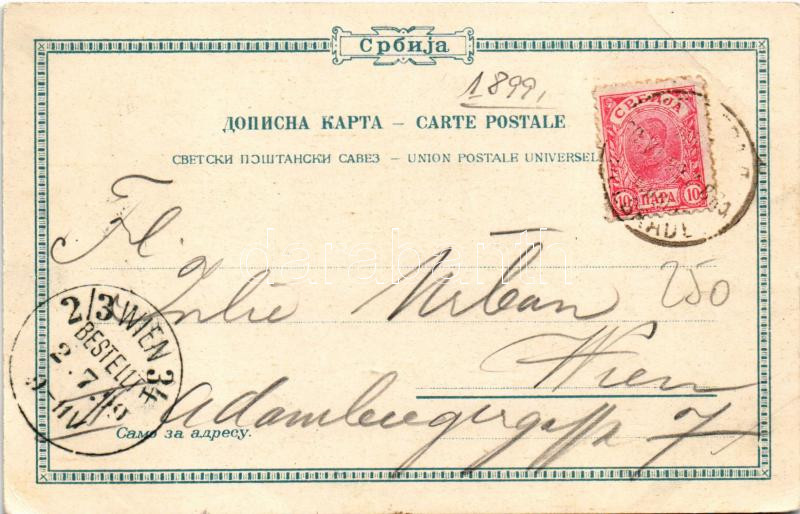 Србија
1899,
ДОПИСНА КАРТА – CARTE POSTALE
СВЕТСКИ ПОШТАНСКИ САВЕЗ – UNION POSTALE UNIVERSEL
СРБИЈА
10 ПАРА 10
Frl.
Julie Urban
250
Wien
Adambergergasse 7
Само за адресу.
2/3 WIEN 34
BESTELLT
2.7.99
9-11V
darabanth